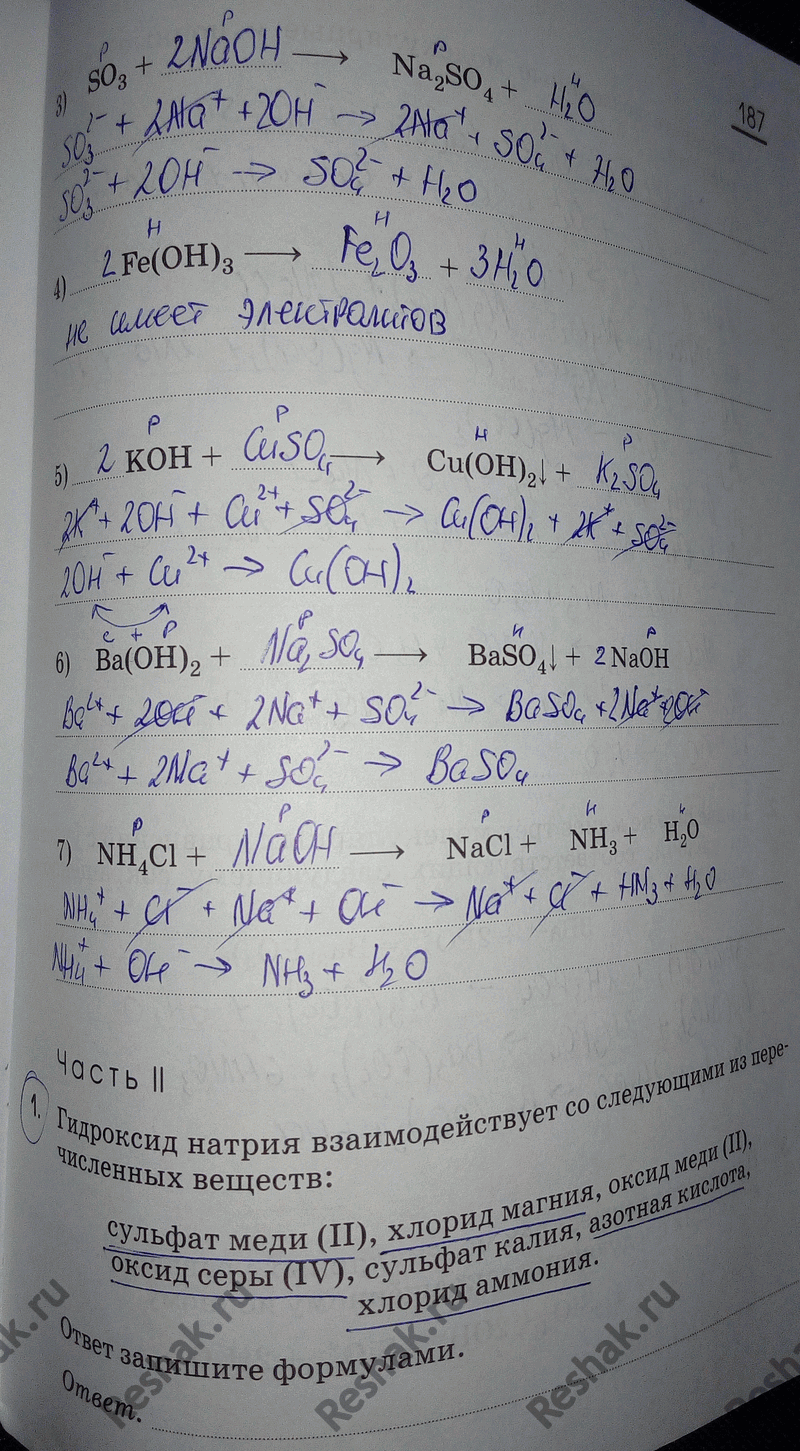 187
р р р н
3) SO₃ + 2NaOH ⟶ Na₂SO₄ + H₂O
SO₃²⁻ + 2Na⁺ + 2OH⁻ → 2Na⁺ + SO₄²⁻ + H₂O
SO₃²⁻ + 2OH⁻ → SO₄²⁻ + H₂O
н н н
4) 2Fe(OH)₃ ⟶ Fe₂O₃ + 3H₂O
не имеет электролитов
р р н р
5) 2 KOH + CuSO₄ ⟶ Cu(OH)₂↓ + K₂SO₄
2K⁺ + 2OH⁻ + Cu²⁺ + SO₄²⁻ → Cu(OH)₂ + 2K⁺ + SO₄²⁻
2OH⁻ + Cu²⁺ → Cu(OH)₂
р р н р
6) Ba(OH)₂ + Na₂SO₄ ⟶ BaSO₄↓ + 2NaOH
Ba²⁺ + 2OH⁻ + 2Na⁺ + SO₄²⁻ → BaSO₄ + 2Na⁺ 2OH⁻
Ba²⁺ + 2Na⁺ + SO₄²⁻ → BaSO₄
р р р н н
7) NH₄Cl + NaOH ⟶ NaCl + NH₃ + H₂O
NH₄⁺ + Cl⁻ + Na⁺ + OH⁻ → Na⁺ + Cl⁻ + HN₃ + H₂O
NH₄⁺ + OH⁻ → NH₃ + H₂O
Часть II
1. Гидроксид натрия взаимодействует со следующими из пере-
численных веществ:
сульфат меди (II), хлорид магния, оксид меди (II),
оксид серы (IV), сульфат калия, азотная кислота,
хлорид аммония.
Ответ запишите формулами.
Ответ.
Reshak.ru
Reshak.ru
Reshak.ru